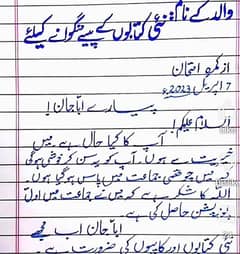 والد کے نام: نئی کتابوں کے پیسے منگوانے کیلئے
از کمرہ امتحان
7 اپریل 2023ء
پیارے ابا جان!
السلام علیکم!
آپ کا کیا حال ہے۔ میں
خیریت سے ہوں۔ آپ کو یہ سن کر خوشی ہو گی
کہ میں چوتھی جماعت میں پاس ہو گیا ہوں۔
اللہ کا شکر ہے کہ میں نے جماعت میں اول
پوزیشن حاصل کی ہے۔
ابا جان اب مجھے
نئی کتابوں اور کاپیوں کی ضرورت ہے۔